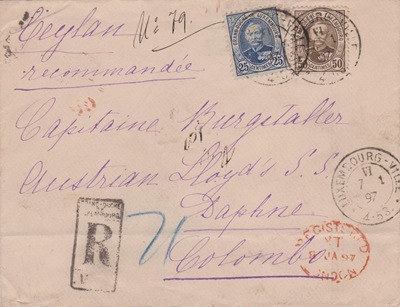 Ceylan
No 79.
recommandée
Capitaine Burgstaller
Austrian Lloyd's S.S.
Daphne
Colombo
GRAND-DUCHÉ DE LUXEMBOURG
R
25 25
50
LUXEMBOURG-VILLE
VI
7 1
97
4-5S
REGISTERED
LONDON